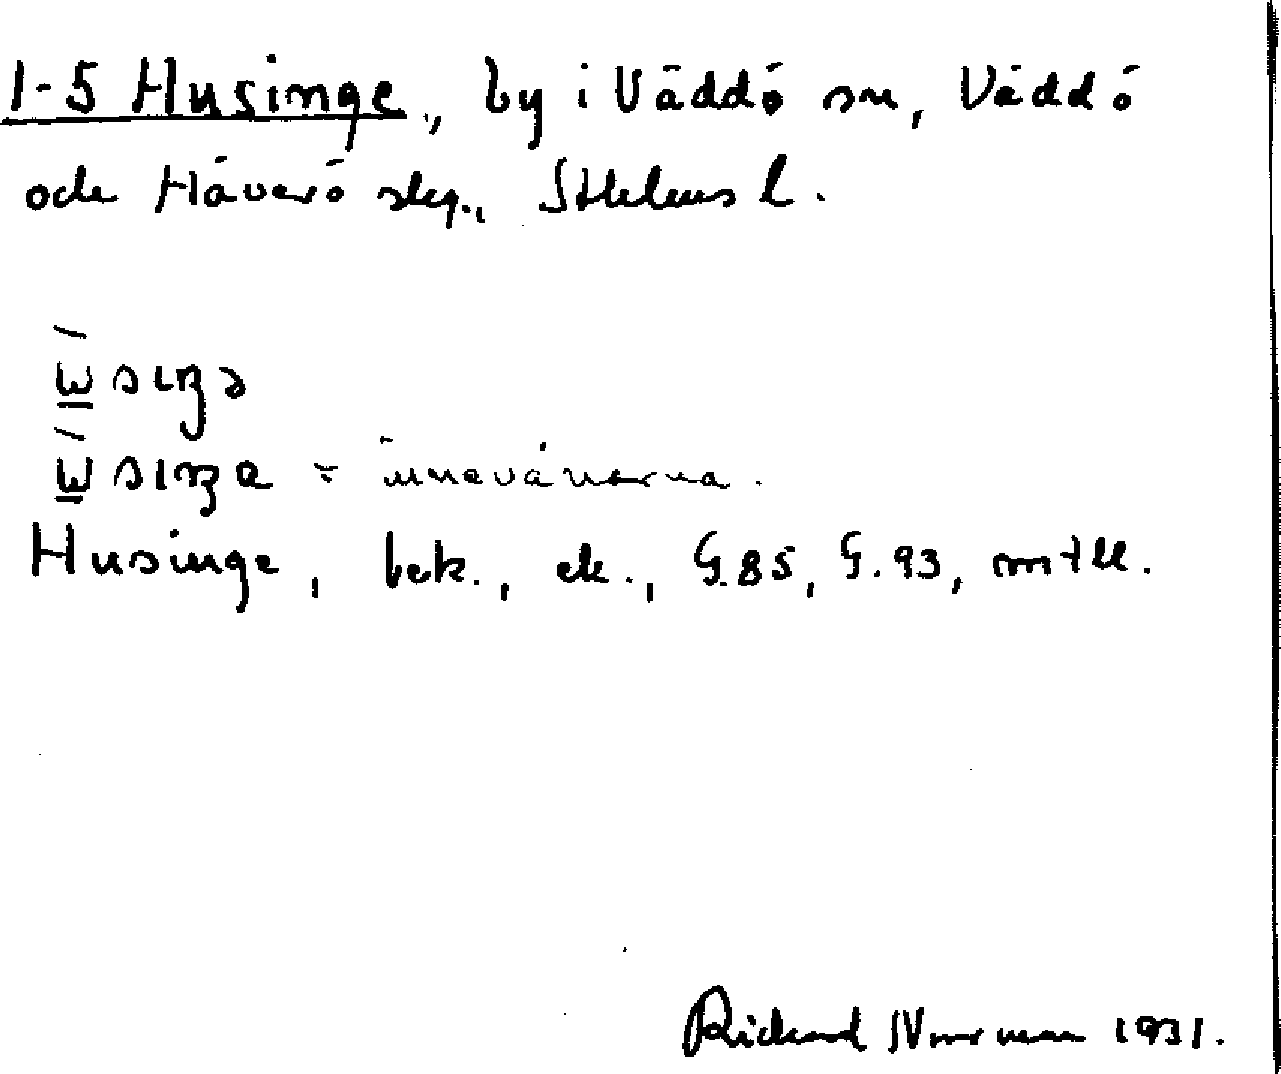 1-5 Husinge, by i Väddö sn, Väddö
och Häverö skg., Sthlms l.
= innevånarna.
Husinge, bek., ek., G.85, G.93, mtll.
Rickard Norrman 1931.